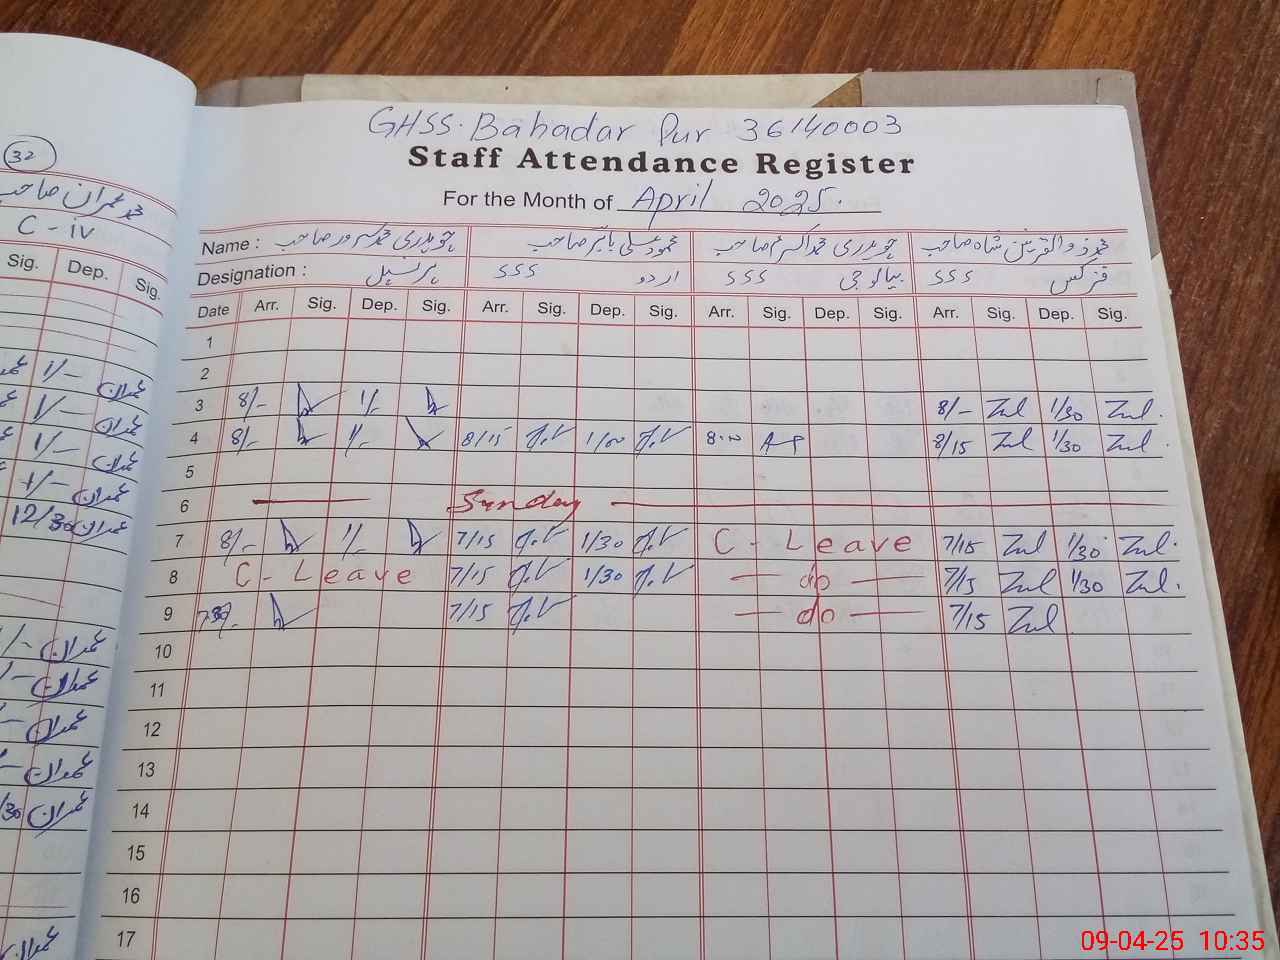 GHSS. Bahadar Pur 36140003
Staff Attendance Register
For the Month of April 2025.
Name : چوہدری محمد سرور صاحب محمود علی بابر صاحب چوہدری محمد اکرم صاحب محمد ذوالقرنین شاہ صاحب
Designation : پرنسپل SSS اردو SSS بیالوجی SSS فزکس
Date Arr. Sig. Dep. Sig. Arr. Sig. Dep. Sig. Arr. Sig. Dep. Sig. Arr. Sig. Dep. Sig.
1
2
3 8/- 1/- 8/- Zul 1/30 Zul.
4 8/- 1/- 8/15 1/00 8:00 8/15 Zul 1/30 Zul.
5
6 Sunday
7 8/- 1/- 7/15 1/30 C - Leave 7/15 Zul 1/30 Zul.
8 C - Leave 7/15 1/30 — do — 7/15 Zul 1/30 Zul.
9 7/15 — do — 7/15 Zul
10
11
12
13
14
15
16
17
32
محمد عمران صاحب
C - iv
Sig. Dep. Sig.
1/- عمران
1/- عمران
1/- عمران
1/- عمران
12/30 عمران
عمران
عمران
عمران
عمران
/30 عمران
عمران
09-04-25 10:35